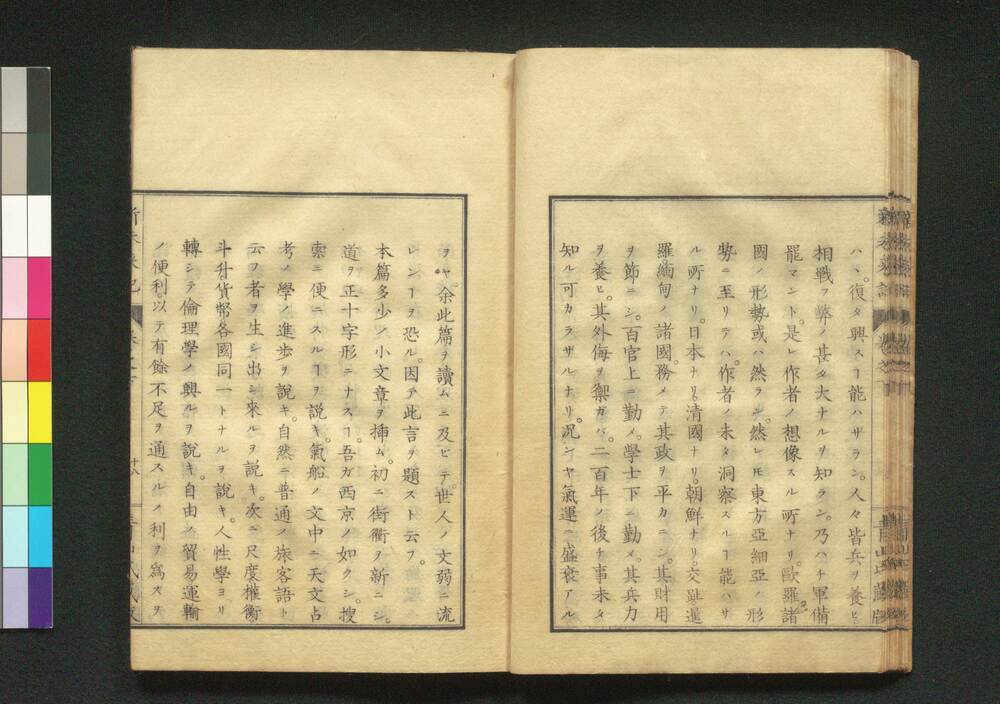 ハヽ。復タ興スヿ能ハザラン。人々皆兵ヲ養ヒ
相戰フ。弊ノ甚タ大ナルヲ知ラン。乃ハチ軍備
罷マント。是レ作者ノ想像スル所ナリ。歐羅諸
國ノ形勢或ハ然ラン。然レ𪜈東方亞細亞ノ形
勢ニ至リテハ。作者ノ未タ洞察スルヿ能ハサ
ル所ナリ。日本ナリ。清國ナリ。朝鮮ナリ。交趾暹
羅緬甸ノ諸國。務メテ其政ヲ平カニシ。其財用
ヲ節ニシ。百官上ニ勤メ。學士下ニ勤メ。其兵力
ヲ養ヒ。其外侮ヲ禦ガバ。二百年ノ後チ事未タ
知ル可カラザルナリ。况ンヤ氣運ニ盛衰アル
ヲヤ。余此篇ヲ讀ムニ及ビテ。世人ノ文弱ニ流
レンヿヲ恐ル。因テ此言ヲ題スト云フ。
本篇多少ノ小文章ヲ挿ム。初ニ街衢ヲ新ニシ。
道ヲ正十字形ニナスヿ。吾ガ西京ノ如クシ。搜
索ニ便ニスルヿヲ説キ。氣船ノ文中ニ天文占
考ノ學ノ進歩ヲ説キ。自然ニ普通ノ旅客語ト
云フ者ヲ生シ出シ來ルヲ説キ。次ニ尺度權衡
斗升貨幣各國同一トナルヲ説キ。人性學ヨリ
轉シテ倫理學ノ興ルヲ説キ。自由ノ貿易運輸
ノ便利。以テ有餘不足ヲ通スルノ利ヲ爲スヲ